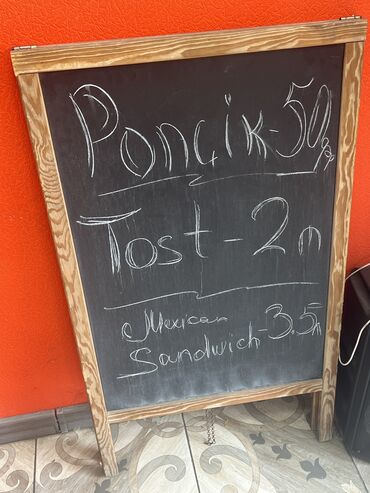 Ponçik-50
Tost-2 n
Mexican
Sandwich-3.5n